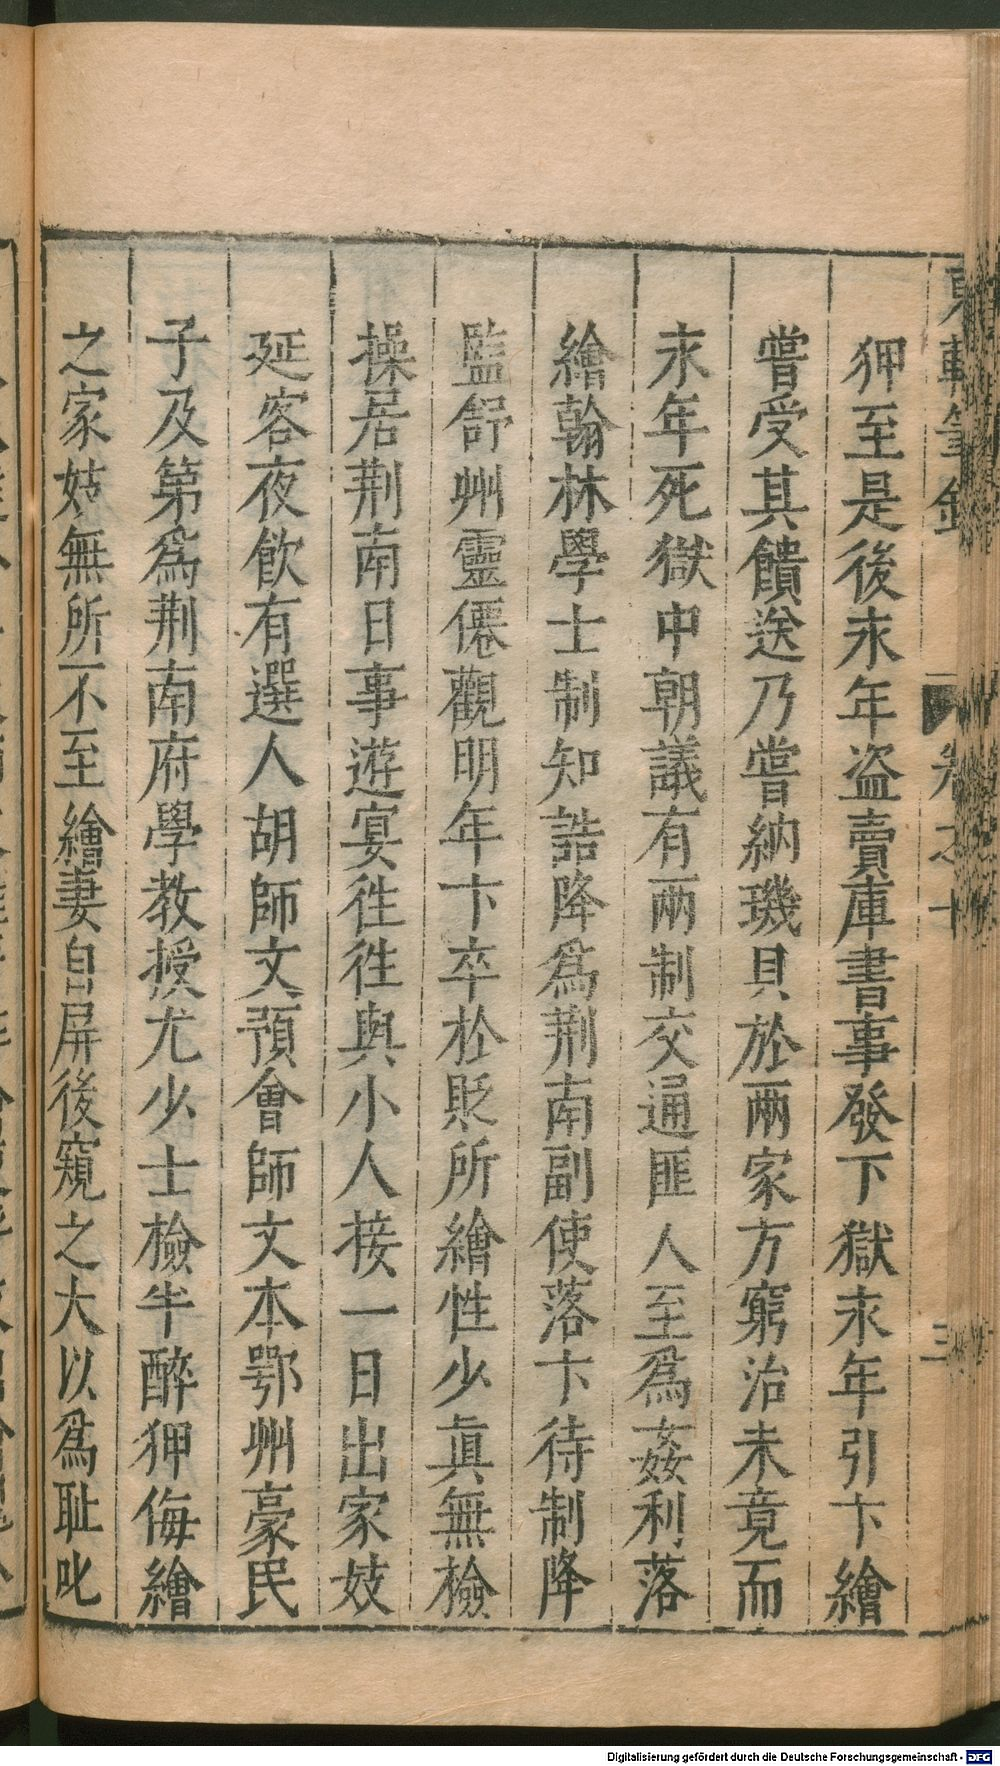 東軒筆錄
卷之十
三
狎至是後永年盗賣庫書事發下獄永年引卞繪
嘗受其饋送乃嘗納璣貝於兩家方窮治未竟而
永年死獄中朝議有兩制交通匪人至爲姦利落
繪翰林學士制知誥降爲荆南副使落卞待制降
監舒州靈僊觀明年卞卒於貶所繪性少眞無檢
操居荆南日事遊宴徃徃與小人接一日出家妓
延客夜飲有選人胡師文預會師文本鄂州豪民
子及第爲荆南府學教授尤少士檢半醉狎侮繪
之家妓無所不至繪妻自屏後窺之大以爲耻叱
Digitalisierung gefördert durch die Deutsche Forschungsgemeinschaft - DFG